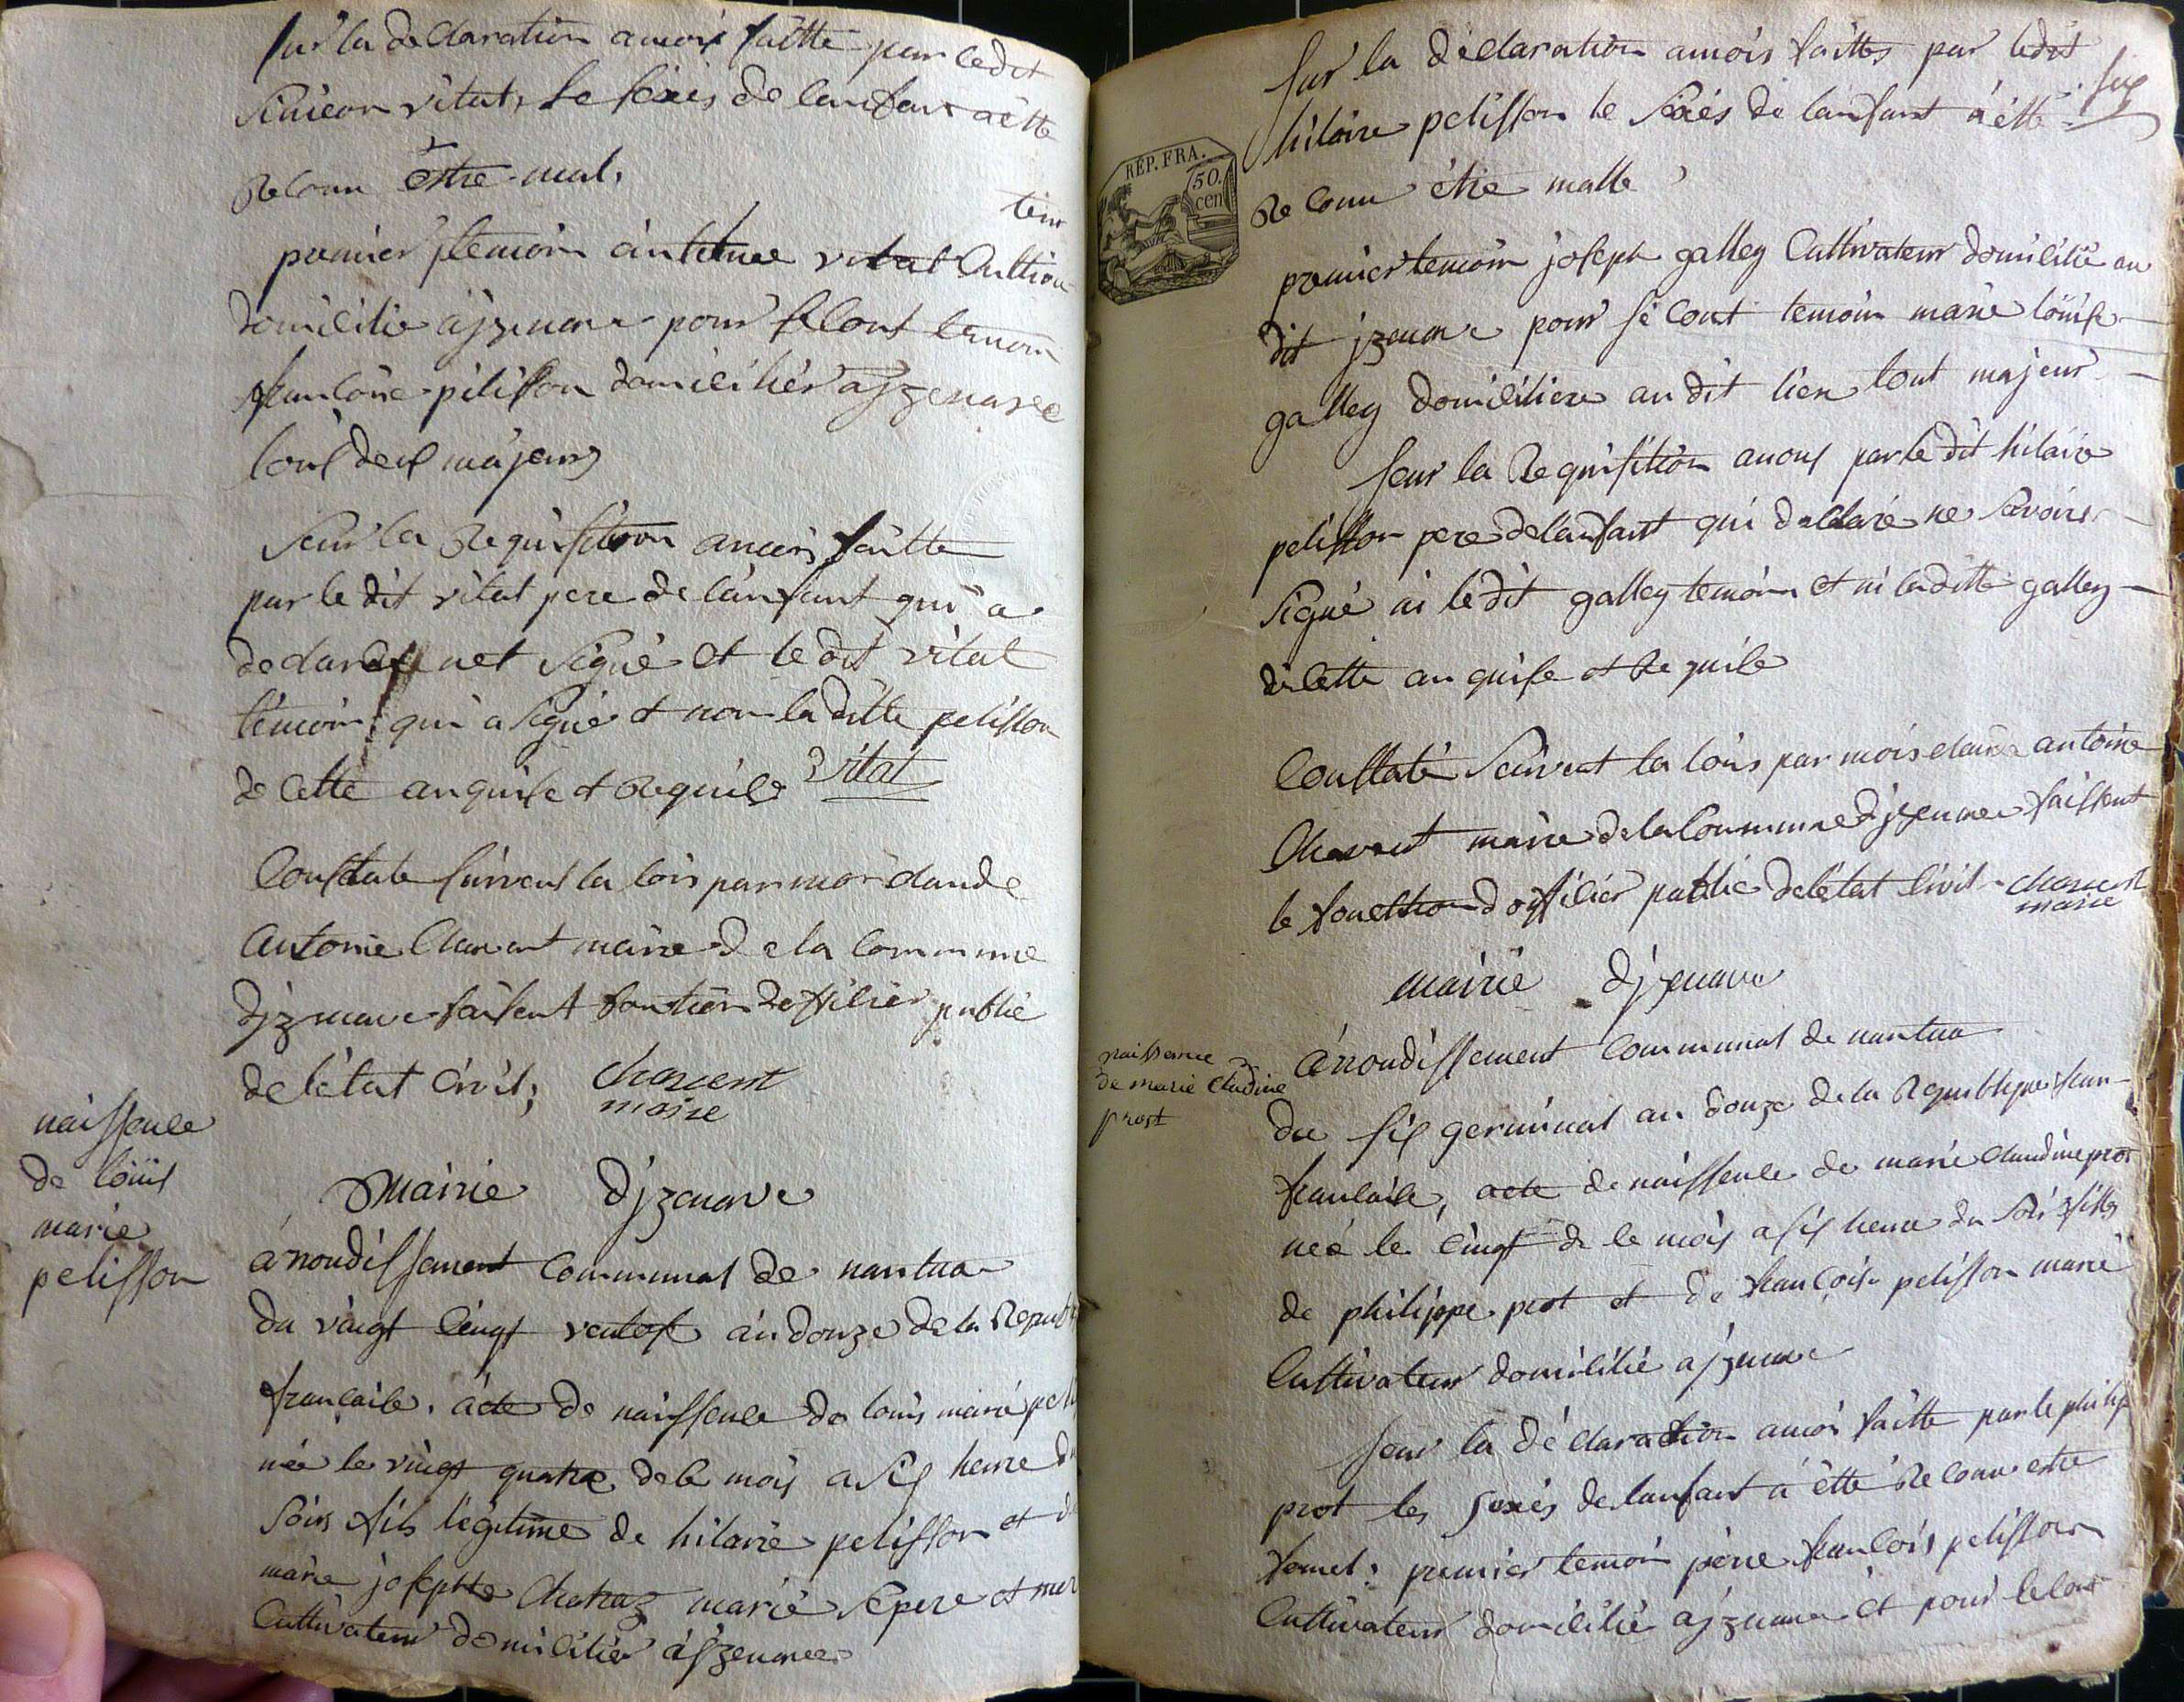 sur la declaration amois faitte par ledit
vital, le sexes de lanfant a ette
Reconu estre mal,
premier temoin antoinne vital Cultiva
teur
domicilie a jzenave pour segont temoin
francoise pelisson domicilies a jzenave
tous deux majeurs
Seur la Requisition amois faitte
par le dit vital pere de lanfant qui a
declaré net signé et le dit vital
temoin qui a signé et non la ditte pelisson
de cette anquise et Requise vital
Constaté suivent la lois par moi claude
antoine Charvent maire de la commune
djzenave faisent fontion dofficier publie
de letat civil; charvent
maire
naissence
de loüis
marie
pelisson
Mairie djzenave
arrondissement communal de nantua
du vaingt cinqt ventose an douze de la Repub
francaise, acte de naissence de louis marie pel
née le vingt quatre de le mois a six heure du
soirs fils legitime de hilaire pelisson et de
marie josephte Chatraz marié pere et mer
Cultivateur domicilié a jzenave
sur la declaration amois faittes par ledit
hilaire pelisson le sexés de lanfant a ette
Reconu être malle
REP. FRA.
50.
cen
premier temoin joseph galley Cultivateur domicilié au
dit jzenave pour segont temoin marie loüise
galley domiciliere au dit lieu tout majeur
Seur la Requisition amois par le dit hilaire
pelisson pere de lanfant qui declare ne savoirs
signé ni le dit galley temoin et ni la ditte galley
de cette anquise et Requise
Constaté suivent la lois par mois claude antoine
Charvent maire de la Commune djzenave faissent
le fonction dofficier publie de letat civil charvent
maire
mairie djzenave
naissence
de marie Cludine
prost
arrondissement Communal de nantua
du six germinal an douze de la Republique fran-
francaise, acte de naissence de marie claudine prot
neé le cinqt de le mois a six heure du soir fille
de philippe prot et de françoise pelisson marié
Cultivateur domicilié a jzenave
seur la déclaration amoi faitte par le philip
prot les sexés de lanfant a été Reconu estre
femel; premier temoin piere francois pelisson
Cultivateur domicilié a jzenave et pour segont